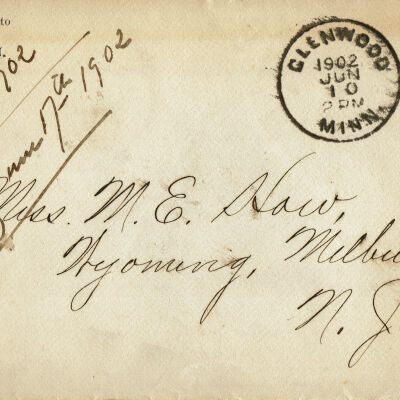 to
902
17th 1902
GLENWOOD
1902
JUN
10
2 PM
MINN.
Miss. M. E. How,
Wyoming, Milbu
N. J